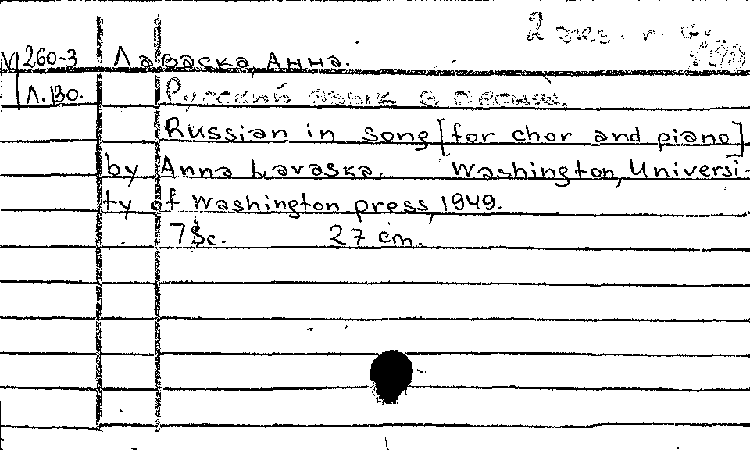 2 экз.
М 260-3 Лаваска, Анна.
Л.ВО. Русский язык в песнях.
Russian in song [for chor and piano]
by Anna Lavaska. Washington, Universi-
ty of Washington press, 1949.
78c. 27 cm.